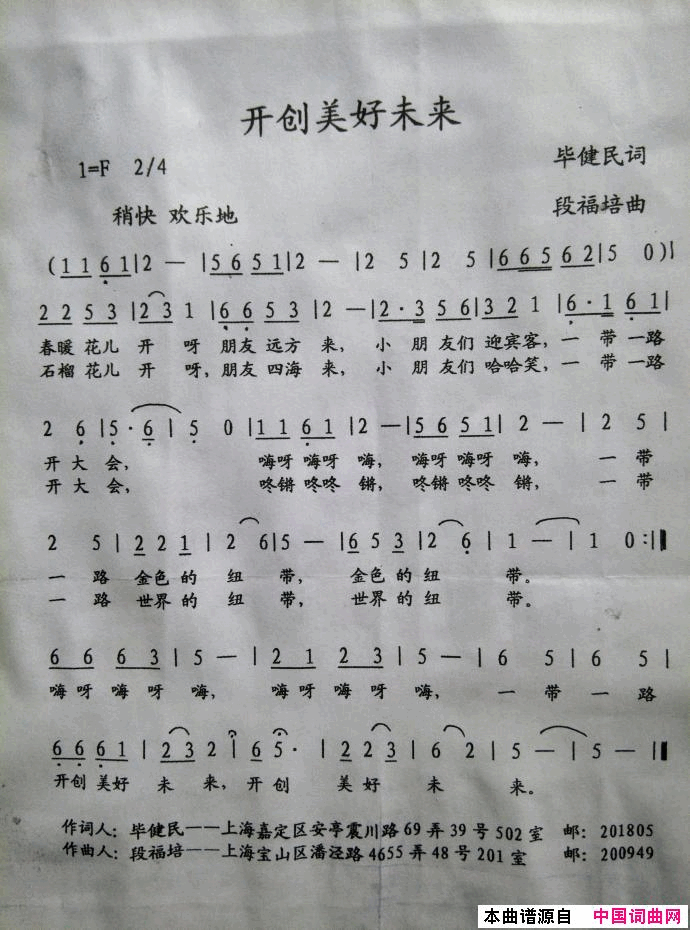 开创美好未来
1=F 2/4 毕健民词
稍快 欢乐地 段福培曲
(1 1 6 1 | 2 — | 5 6 5 1 | 2 — | 2 5 | 2 5 | 6 6 5 6 2 | 5 0 ) |
2 2 5 3 | 2 3 1 | 6 6 5 3 | 2 — | 2 · 3 5 6 | 3 2 1 | 6 · 1 6 1 |
春暖 花儿 开 呀 朋友 远方 来, 小 朋 友们 迎宾客, 一 带 一路
石榴 花儿 开 呀, 朋友 四海 来, 小 朋 友们 哈哈笑, 一 带 一路
2 6 | 5 · 6 | 5 0 | 1 1 6 1 | 2 — | 5 6 5 1 | 2 — | 2 5 |
开 大 会, 嗨呀 嗨呀 嗨, 嗨呀 嗨呀 嗨, 一 带
开 大 会, 咚锵 咚咚 锵, 咚锵 咚咚 锵, 一 带
2 5 | 2 2 1 | 2 6 | 5 — | 6 5 3 | 2 6 | 1 — | 1 0 :||
一 路 金色 的 纽 带, 金色 的 纽 带。
一 路 世界 的 纽 带, 世界 的 纽 带。
6 6 6 3 | 5 — | 2 1 2 3 | 5 — | 6 5 | 6 5 |
嗨 呀 嗨 呀 嗨, 嗨 呀 嗨 呀 嗨, 一 带 一 路
6 6 6 1 | 2 3 2 | 6 5 · | 2 2 3 | 6 2 | 5 — | 5 — ||
开创 美好 未 来, 开 创 美 好 未 来。
作词人: 毕健民——上海嘉定区安亭震川路 69 弄 39 号 502 室 邮: 201805
作曲人: 段福培——上海宝山区潘泾路 4655 弄 48 号 201 室 邮: 200949
本曲谱源自 中国词曲网